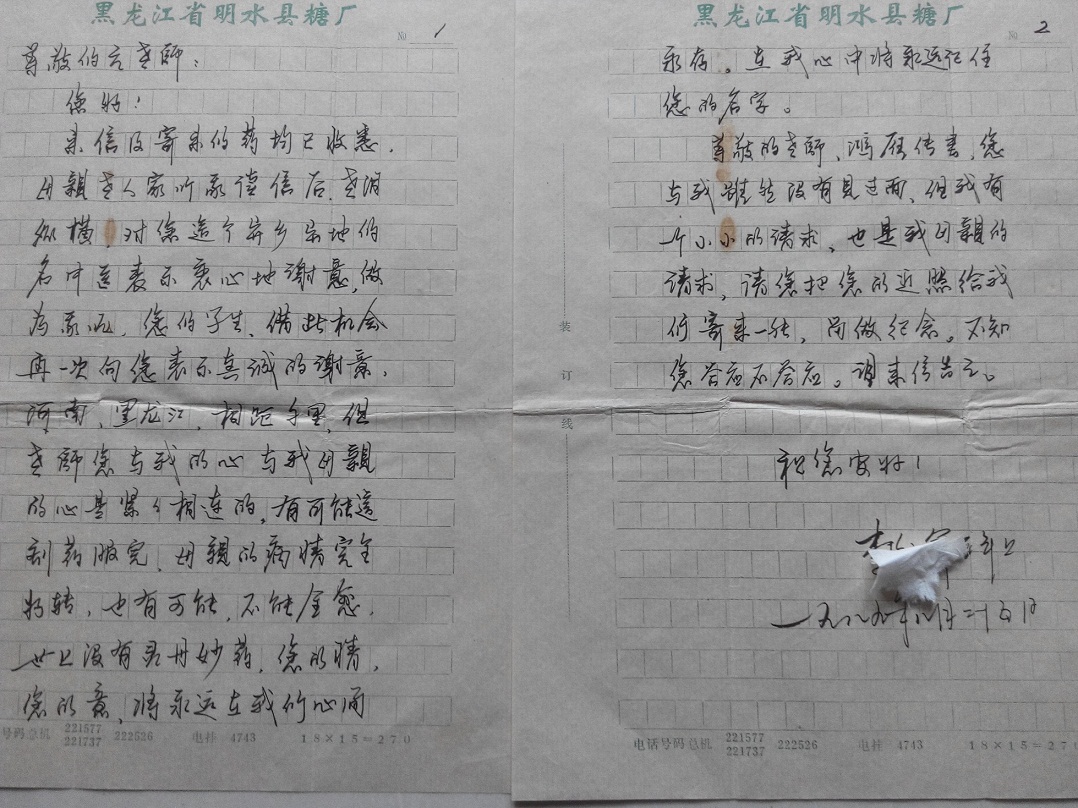 黑龙江省明水县糖厂
№ 1
尊敬的方老师：
您好！
来信及寄来的药均已收悉，
母亲老人家听我读信后，老泪
纵横，对您这个异乡异地的
名中医表示衷心地谢意，做
为我们，您的学生，借此机会
再一次向您表示真诚的谢意，
河南，黑龙江，相距千里，但
老师您与我的心与我母亲
的心是紧々相连的，有可能这
剂药服完，母亲的病情完全
好转，也有可能，不能全愈，
世上没有灵丹妙药，您的情，
您的意，将永远在我们心间
号码总机 221577 221737 222526 电挂 4743 18×15=270
装
订
线
黑龙江省明水县糖厂
№ 2
永存。在我心中将永远记住
您的名字。
尊敬的老师，鸿雁传书，您
与我虽然没有见过面，但我有
一个小小的请求，也是我母亲的
请求，请您把您的近照给我
们寄来一张，留做纪念。不知
您答应不答应。请来信告之。
祝您安好！
李
一九八九年八月二十五日
电话号码总机 221577 221737 222526 电挂 4743 18×15=270